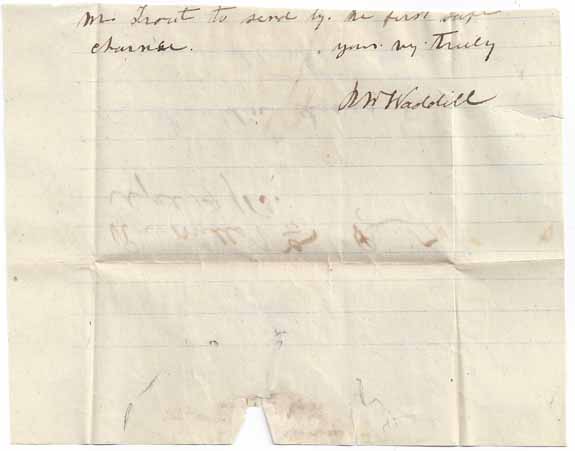 Mr Trout to send by the first safe
chance. yours vy truly
Waddill